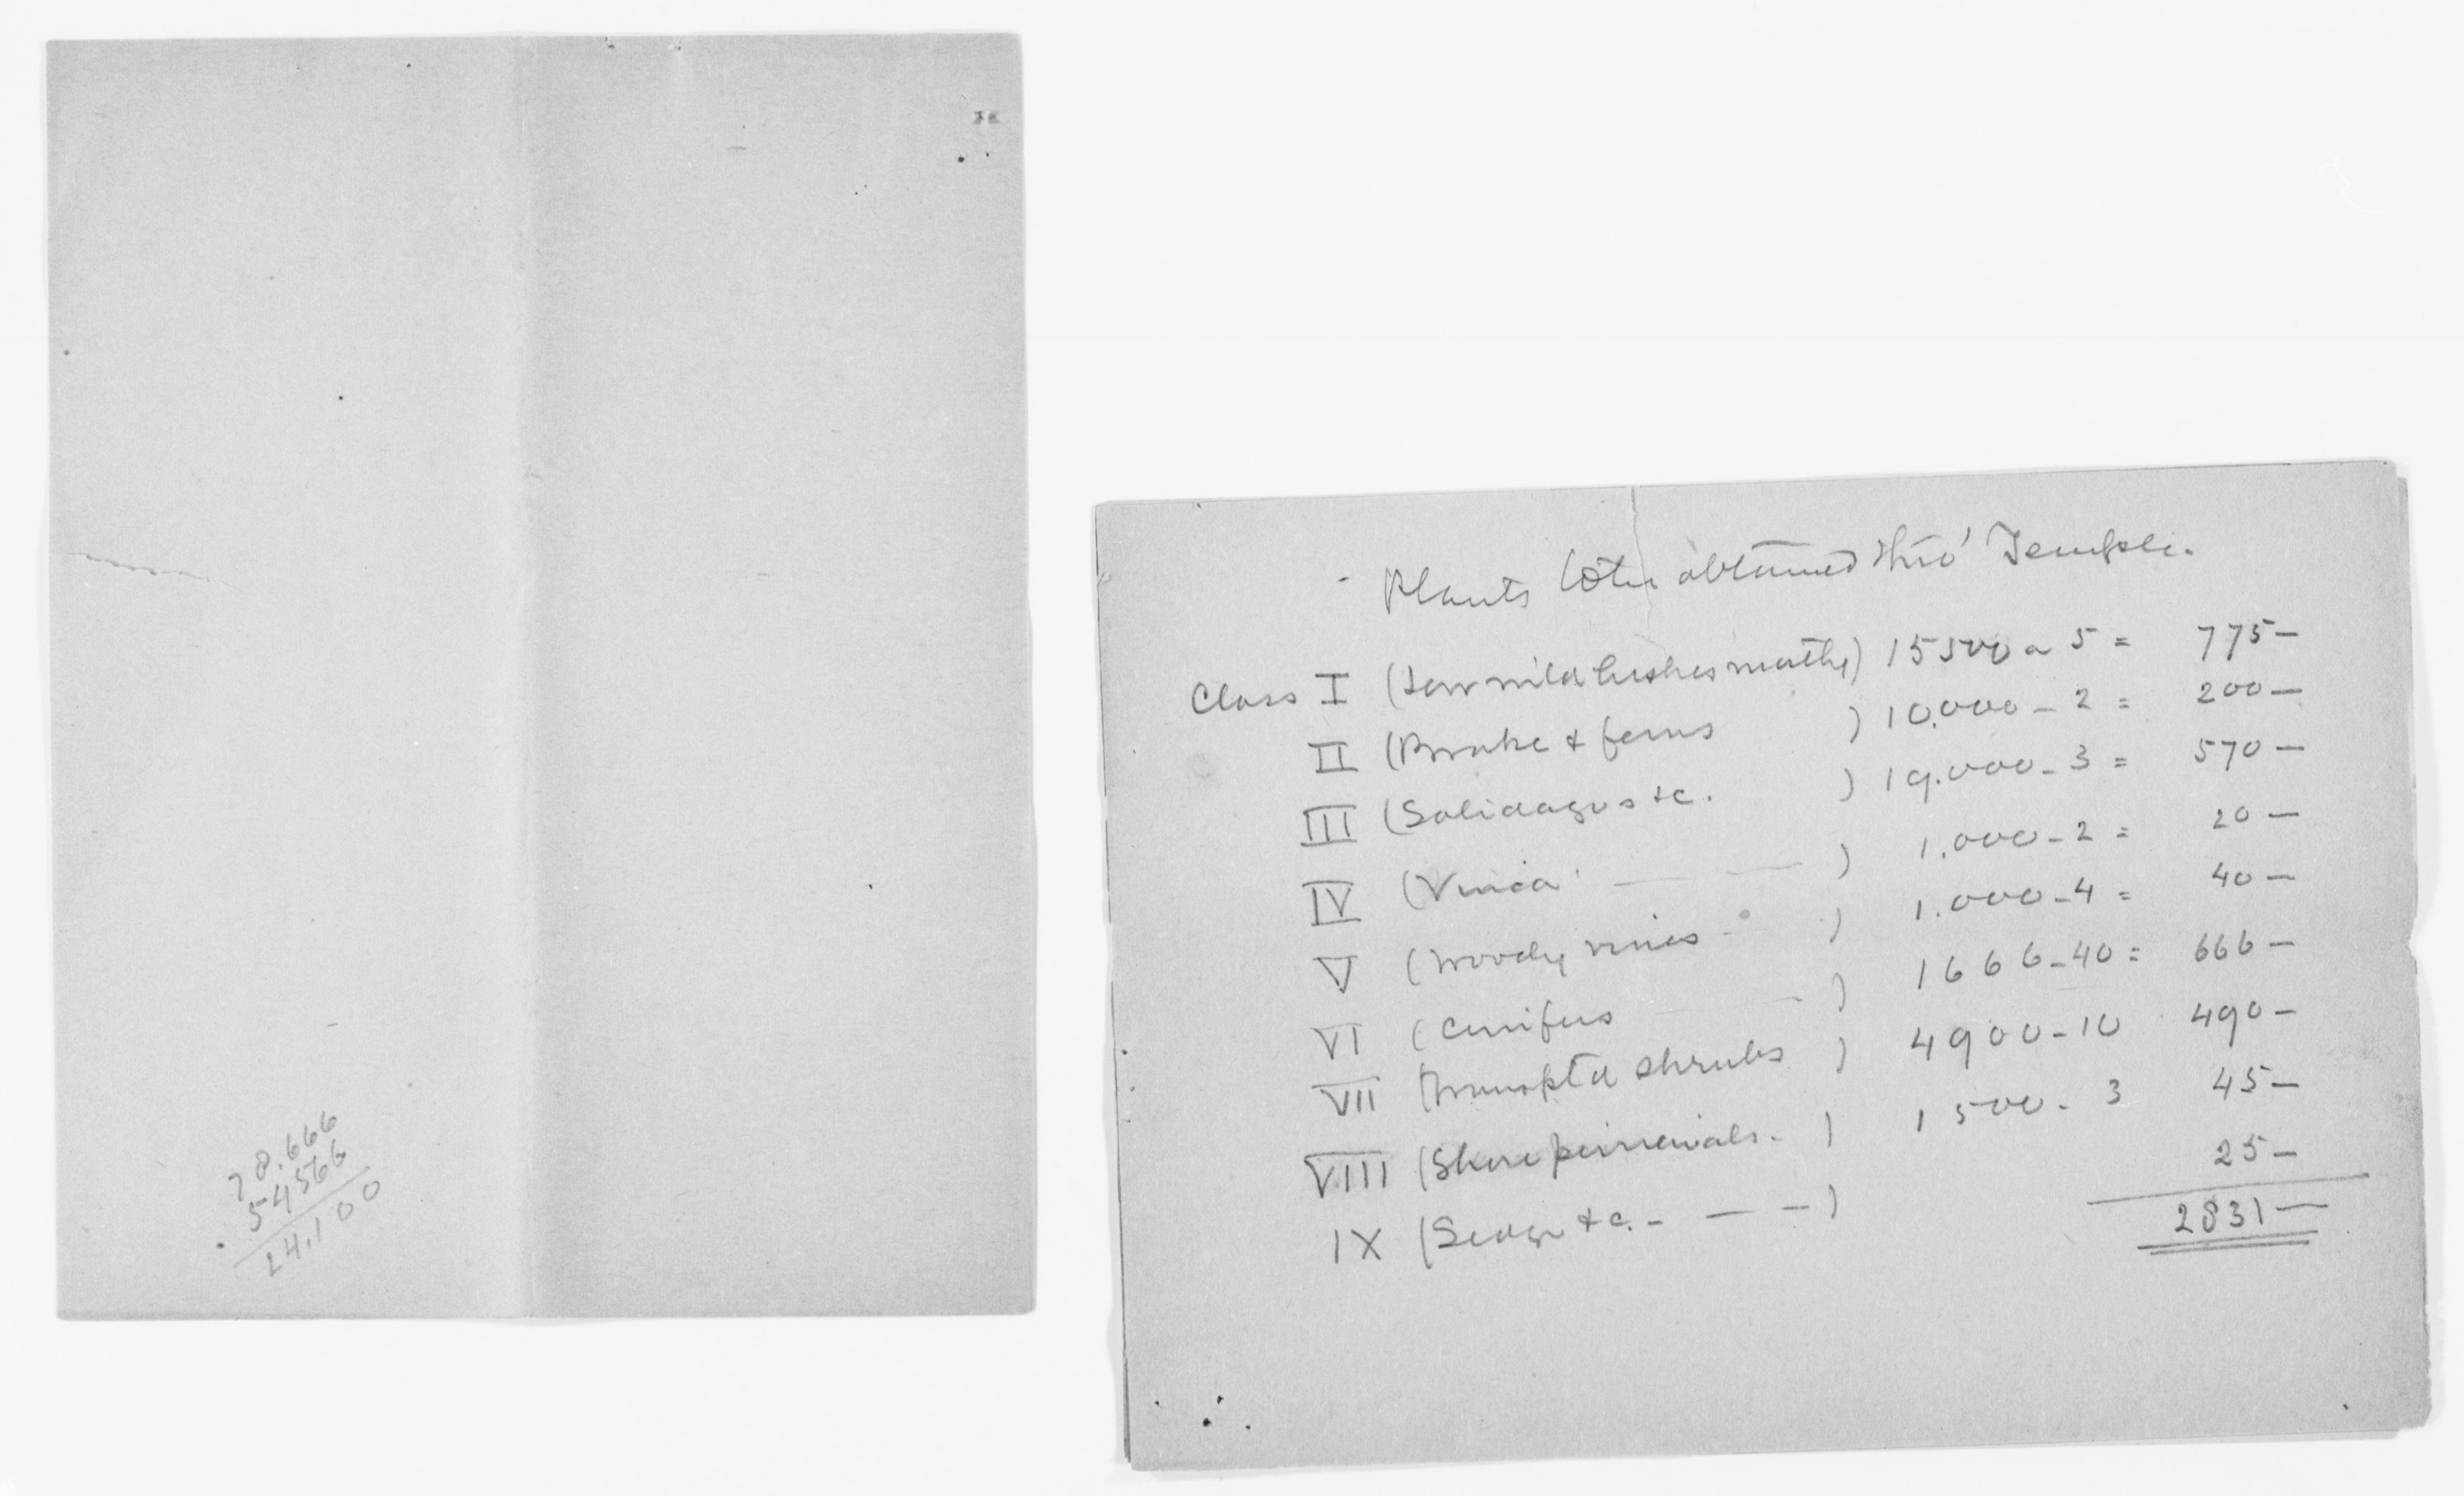 78.666
54566
24.100
Plants to be obtained thro' Temple.
Class I (Low wild bushes mostly) 15500 a 5 = 775—
II (Brake & ferns ) 10.000 - 2 = 200—
III (Solidagos &c. ) 19.000 - 3 = 570—
IV (Vinca — — ) 1.000 - 2 = 20—
V (Woody vines - ) 1.000 - 4 = 40—
VI (Conifers — ) 1666 - 40 = 666—
VII (Transptd shrubs ) 4900 - 10 490—
VIII (Shore perennials - ) 1500 - 3 45—
IX (Sedge &c. - — — ) 25—
2831—